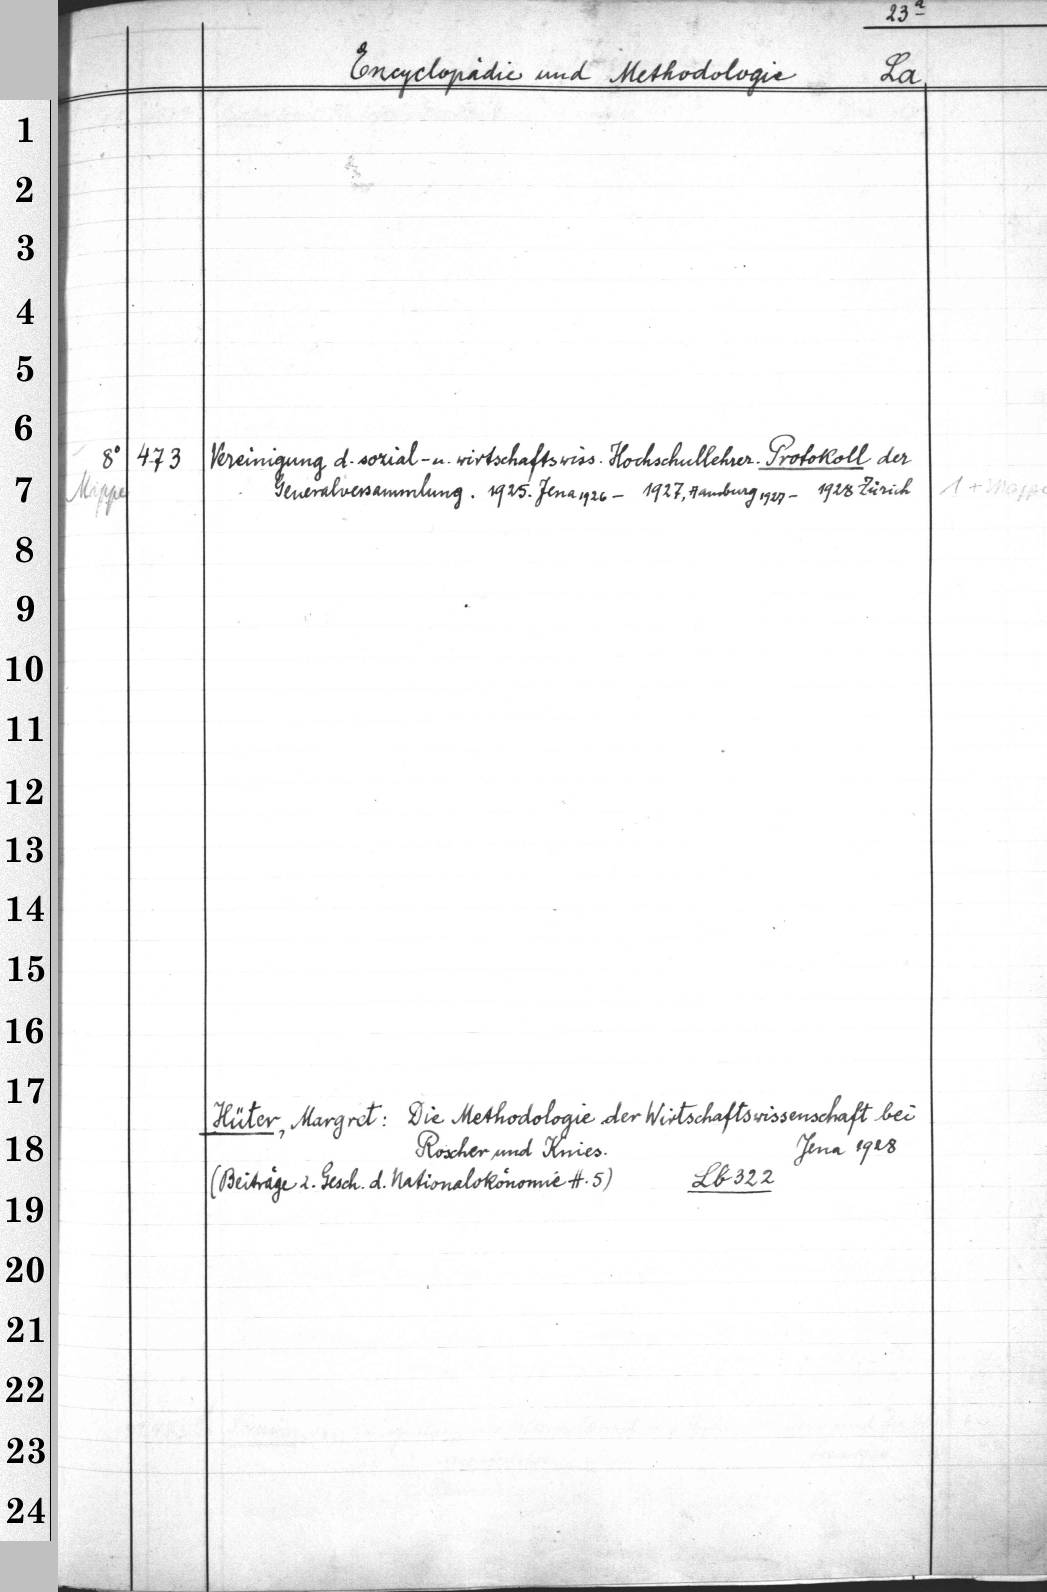 23a
Encyclopädie und Methodologie La
1
2
3
4
5
6
8° 473 Vereinigung d. sozial- u. wirtschaftswiss. Hochschullehrer. Protokoll der
7 Mappe Generalversammlung. 1925. Jena 1926 – 1927, Hamburg 1927 – 1928 Zürich 1 + Mappe
8
9
10
11
12
13
14
15
16
17
Hüter, Margret: Die Methodologie der Wirtschaftswissenschaft bei
18 Roscher und Knies. Jena 1928
(Beiträge z. Gesch. d. Nationalökonomie H. 5) Lb 322
19
20
21
22
23
24